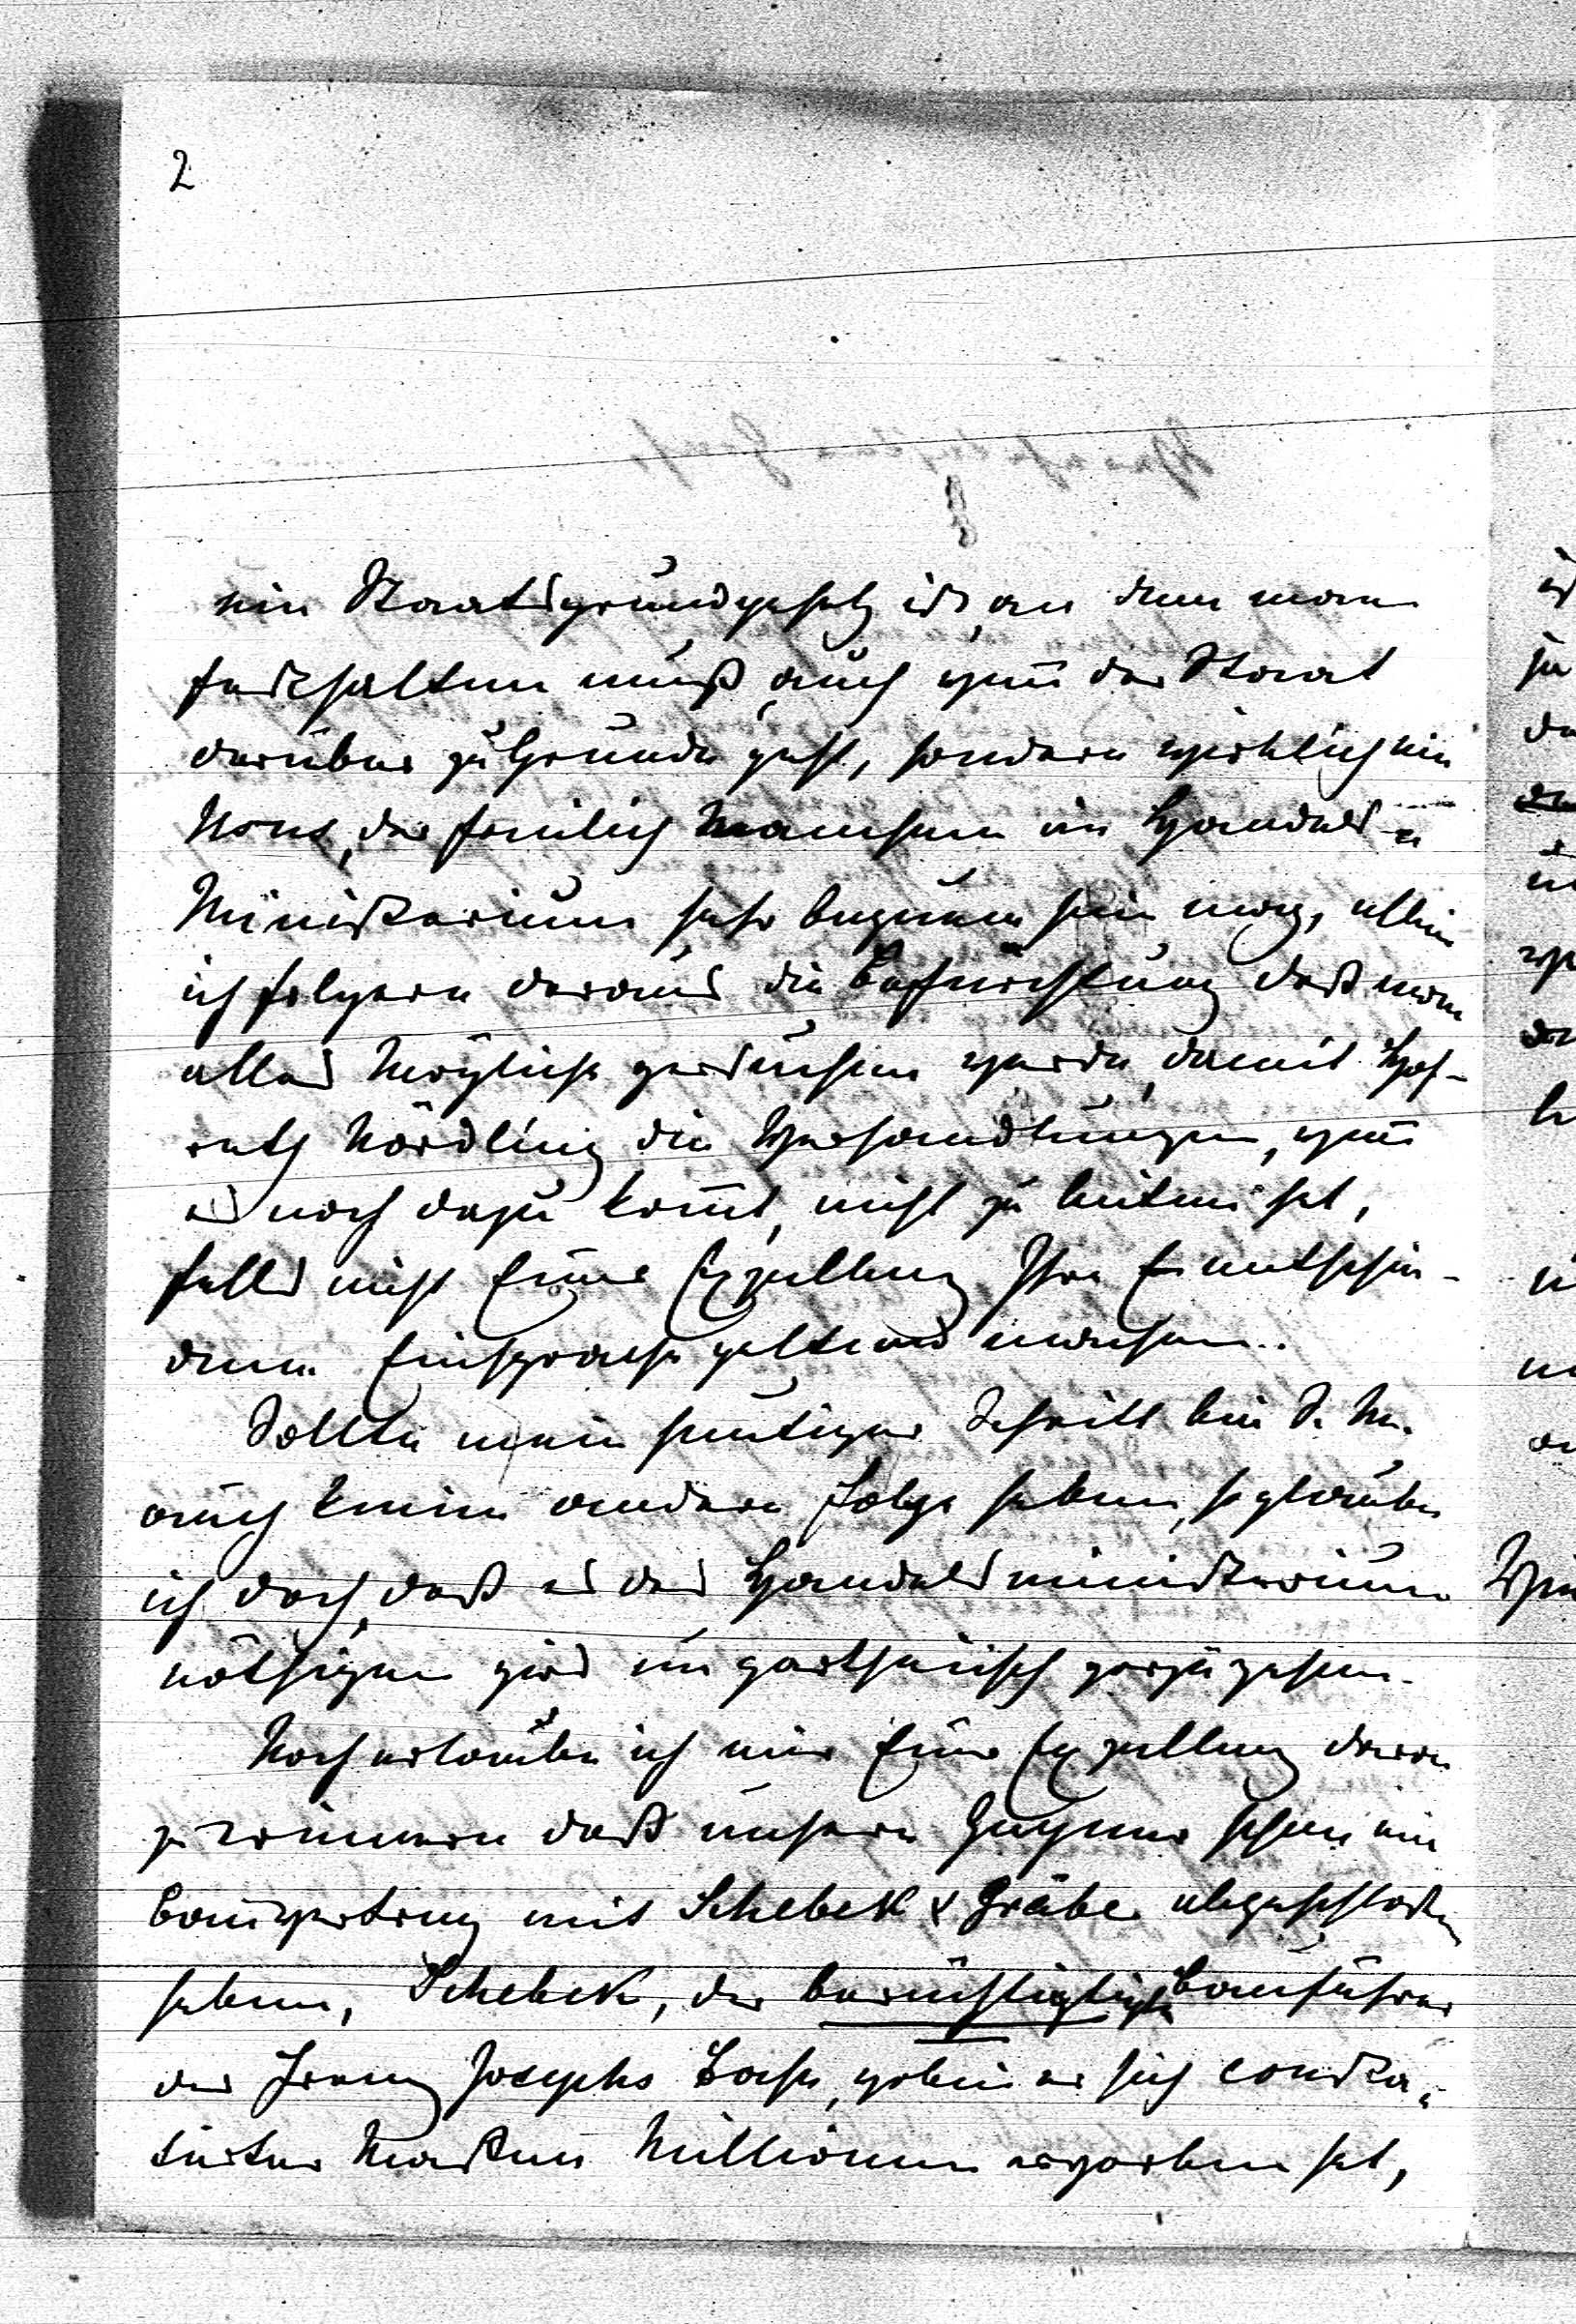 2
ein Staatsgrundgesetz ist, an dem man
festhalten muß, auch wenn der Staat
darüber zu Grunde geht, sondern wirklich ein
der freilich Manchem im Handels-
Ministerium sehr bequem sein mag, allein
ich folgere daraus die Befürchtung daß man
alles Mögliche versuchen werde, damit Hof-
rath Nördling die Verhandlungen, wenn
es noch dazu kommt, nicht zu leiten hat,
falls nicht Eure Exzellenz Ihre entschie-
dene Einsprache geltend machen.
Sollte mein heutiger Schritt bei S. M.
auch keine andere Folge haben, so glaube
ich doch, daß es das Handelsministerium
nöthigen wird vorzugehen.
Noch erlaube ich mir Eure Exzellenz daran
zu erinnern daß unsere Gegner schon ein
Bauvertrag mit Schebek & Gräbe abgeschloßen
haben, Schebek, der berüchtigtigste Bauführer
der Franz Josephs Bahn, wobei er sich consta-
tirter Maßen Millionen erworben hat,